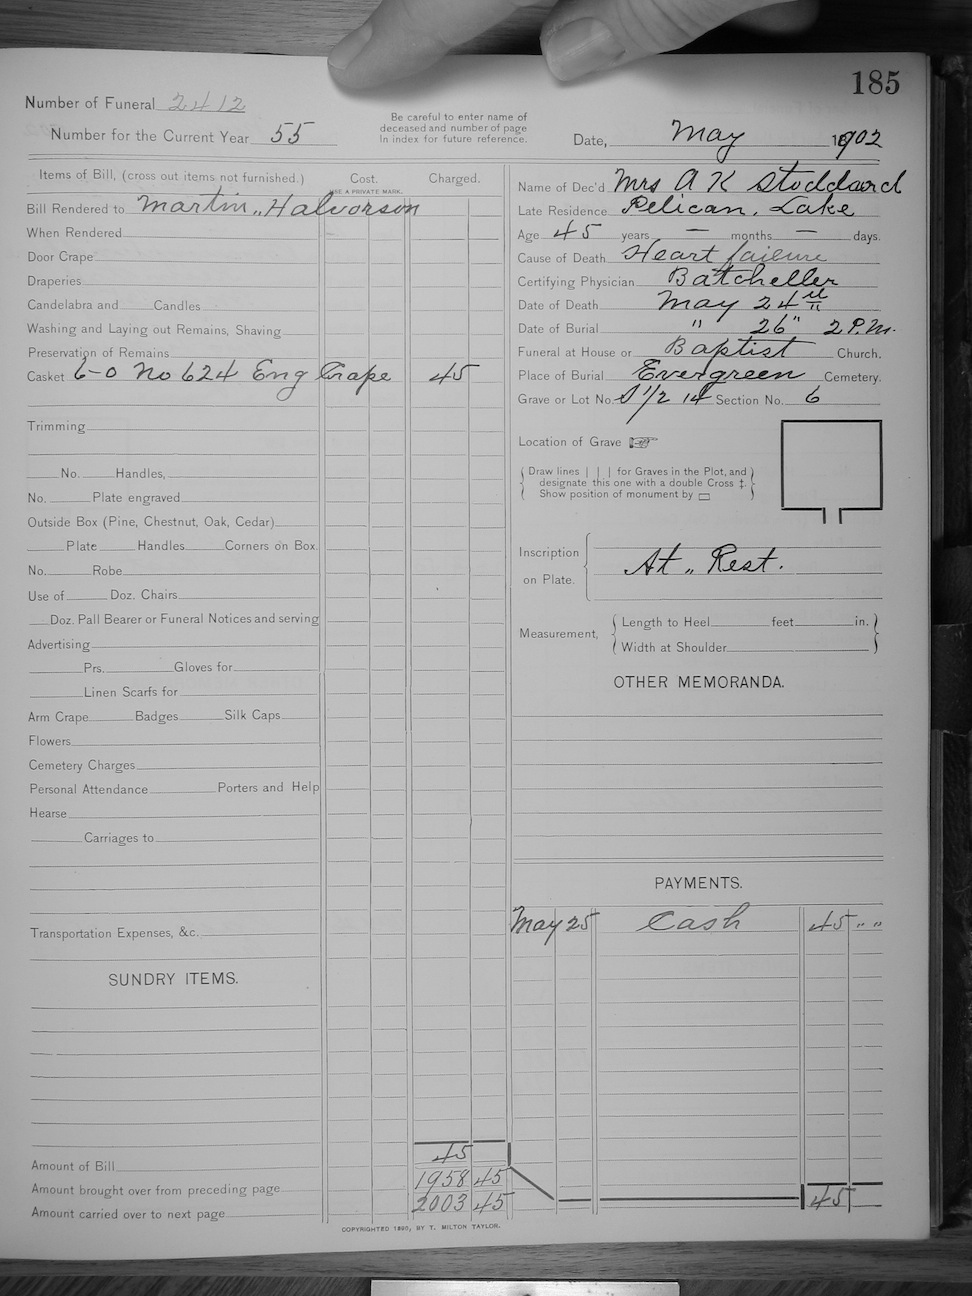 185
Number of Funeral 2412
Number for the Current Year 55
Be careful to enter name of
deceased and number of page
in index for future reference.
Date, May 1902
Items of Bill, (cross out items not furnished.) Cost. Charged.
USE A PRIVATE MARK.
Bill Rendered to Martin Halvorson
When Rendered
Door Crape
Draperies
Candelabra and Candles
Washing and Laying out Remains, Shaving
Preservation of Remains
Casket 6-0 No 624 Eng Crape 45
Trimming
No. Handles,
No. Plate engraved
Outside Box (Pine, Chestnut, Oak, Cedar)
Plate Handles Corners on Box.
No. Robe
Use of Doz. Chairs
Doz. Pall Bearer or Funeral Notices and serving
Advertising
Prs. Gloves for
Linen Scarfs for
Arm Crape Badges Silk Caps
Flowers
Cemetery Charges
Personal Attendance Porters and Help
Hearse
Carriages to
Transportation Expenses, &c.
SUNDRY ITEMS.
Amount of Bill 45
Amount brought over from preceding page 1958 45
Amount carried over to next page 2003 45
Name of Dec'd Mrs A K Stoddard
Late Residence Pelican, Lake
Age 45 years — months — days.
Cause of Death Heart failure
Certifying Physician Batcheller
Date of Death May 24
Date of Burial " 26" 2 P.M.
Funeral at House or Baptist Church.
Place of Burial Evergreen Cemetery.
Grave or Lot No. S 1/2 14 Section No. 6
Location of Grave ☞
Draw lines | | | for Graves in the Plot, and
designate this one with a double Cross ‡.
Show position of monument by ▭
Inscription
on Plate. At Rest.
Measurement, Length to Heel feet in.
Width at Shoulder
OTHER MEMORANDA.
PAYMENTS.
May 25 Cash 45 " "
45
COPYRIGHTED 1890, BY T. MILTON TAYLOR.